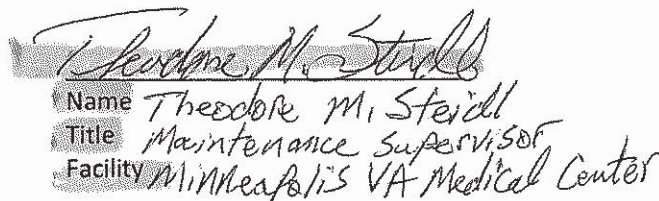 Theodore M. Steidl
Name Theodore M. Steidl
Title Maintenance Supervisor
Facility Minneapolis VA Medical Center